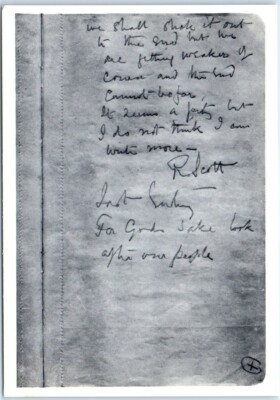 we shall stick it out
to the end but we
are getting weaker of
course and the end
cannot be far.
It seems a pity but
I do not think I can
write more –
R Scott
Last Entry
For Gods sake look
after our people